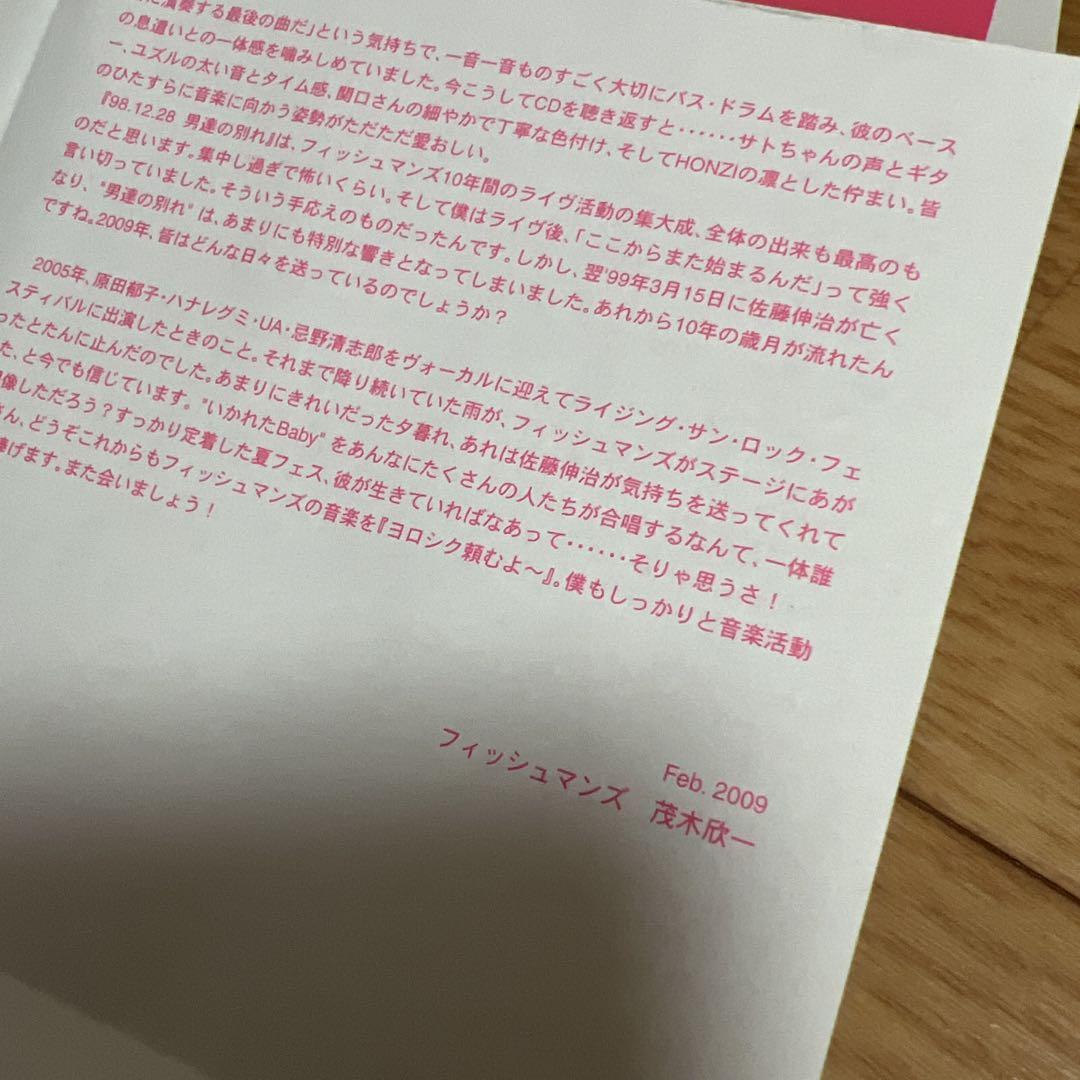 に演奏する最後の曲だ」という気持ちで、一音一音ものすごく大切にバス・ドラムを踏み、彼のベース
の息遣いとの一体感を噛みしめていました。今こうしてCDを聴き返すと‥‥‥サトちゃんの声とギタ
ー、ユズルの太い音とタイム感、関口さんの細やかで丁寧な色付け、そしてHONZIの凛とした佇まい。皆
のひたすらに音楽に向かう姿勢がただただ愛おしい。
『98.12.28 男達の別れ』は、フィッシュマンズ10年間のライヴ活動の集大成、全体の出来も最高のも
のだと思います。集中し過ぎで怖いくらい。そして僕はライヴ後、「ここからまた始まるんだ」って強く
言い切っていました。そういう手応えのものだったんです。しかし、翌'99年3月15日に佐藤伸治が亡く
なり、"男達の別れ" は、あまりにも特別な響きとなってしまいました。あれから10年の歳月が流れたん
ですね。2009年、皆はどんな日々を送っているのでしょうか？
2005年、原田郁子・ハナレグミ・UA・忌野清志郎をヴォーカルに迎えてライジング・サン・ロック・フェ
スティバルに出演したときのこと。それまで降り続いていた雨が、フィッシュマンズがステージにあが
ったとたんに止んだのでした。あまりにきれいだった夕暮れ、あれは佐藤伸治が気持ちを送ってくれて
た、と今でも信じています。"いかれたBaby" をあんなにたくさんの人たちが合唱するなんて、一体誰
像しただろう？すっかり定着した夏フェス、彼が生きていればなあって‥‥‥そりゃ思うさ！
さん、どうぞこれからもフィッシュマンズの音楽を『ヨロシク頼むよ〜』。僕もしっかりと音楽活動
捧げます。また会いましょう！
Feb. 2009
フィッシュマンズ 茂木欣一